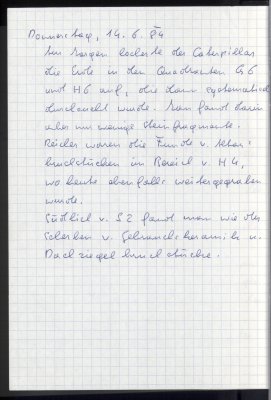 Donnerstag, 14. 6. 84
Am Morgen lockerte der Caterpillar
die Erde in den Quadranten G6
und H6 auf, die dann systematisch
durchsucht wurde. Man fand darin
aber nur wenige Steinfragmente.
Reicher waren die Funde v.
bruchstücken im Bereich v. H4,
wo heute ebenfalls weitergegraben
wurde.
Südlich v. S2 fand man wieder
Scherben v. Gebrauchskeramik u.
Dachziegelbruchstücke.